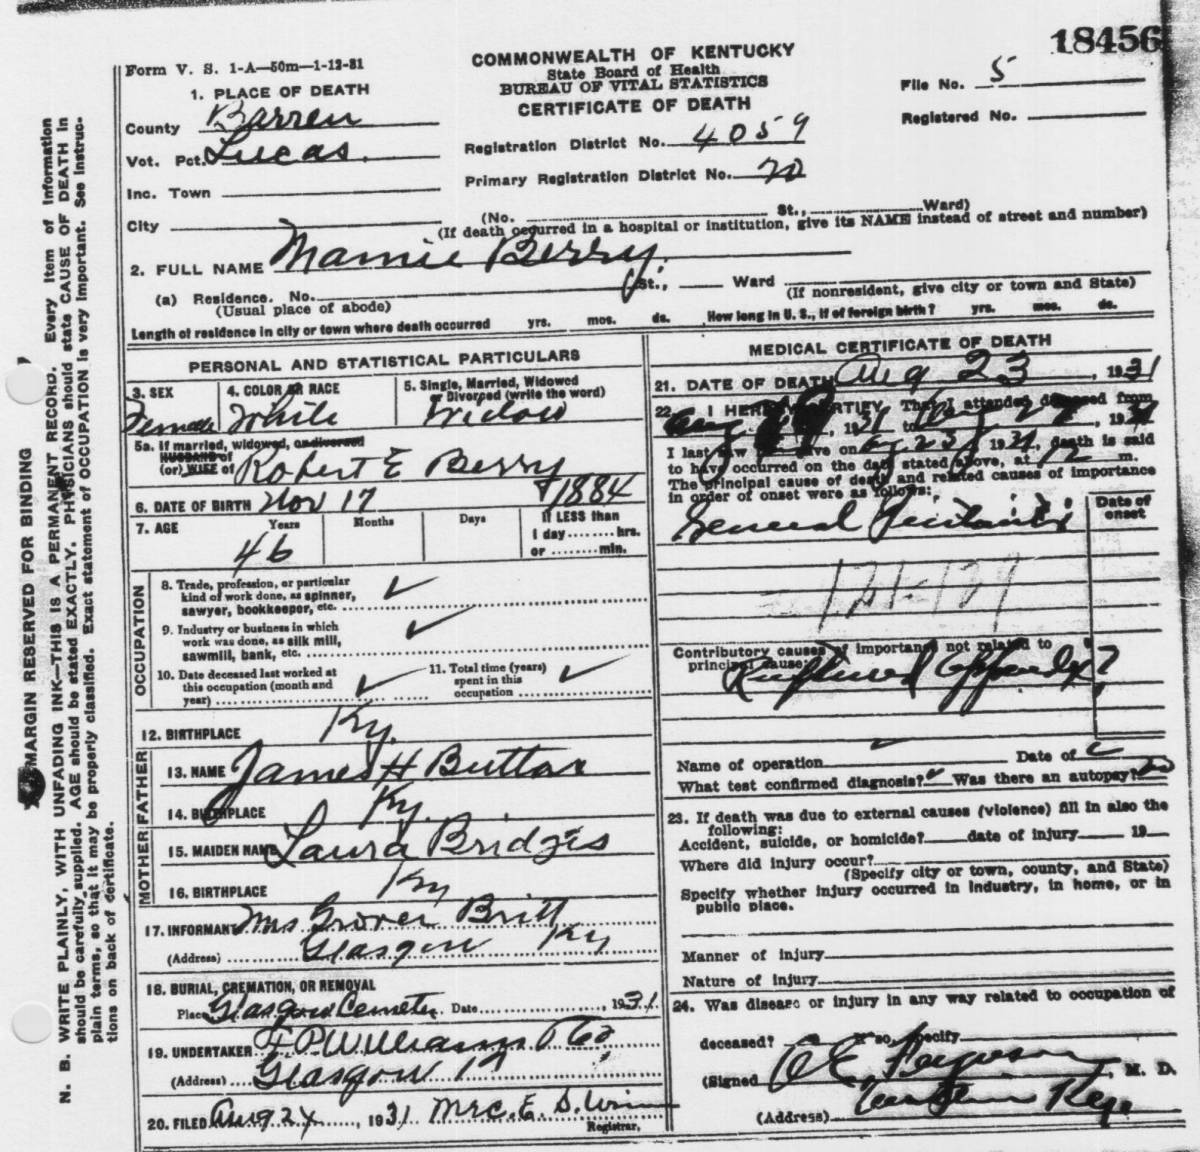 18456
Form V. S. 1-A—50m—1-12-31
COMMONWEALTH OF KENTUCKY
State Board of Health
BUREAU OF VITAL STATISTICS
CERTIFICATE OF DEATH
File No. 5
Registered No.
1. PLACE OF DEATH
County Barren
Vot. Pct. Lucas.
Inc. Town
City
Registration District No. 4059
Primary Registration District No. 70
(No. St., Ward)
(If death occurred in a hospital or institution, give its NAME instead of street and number)
2. FULL NAME Mamie Berry.
(a) Residence. No. St., Ward
(Usual place of abode) (If nonresident, give city or town and State)
Length of residence in city or town where death occurred yrs. mos. ds. How long in U. S., if of foreign birth? yrs. mos. ds.
PERSONAL AND STATISTICAL PARTICULARS
3. SEX
Female
4. COLOR OR RACE
White
5. Single, Married, Widowed
or Divorced (write the word)
Widow
5a. If married, widowed, or divorced
HUSBAND of
(or) WIFE of Robert E Berry
6. DATE OF BIRTH Nov 17 1884
7. AGE Years Months Days If LESS than
46 1 day ........ hrs.
or ........ min.
OCCUPATION
8. Trade, profession, or particular
kind of work done, as spinner,
sawyer, bookkeeper, etc. ✓
9. Industry or business in which
work was done, as silk mill,
sawmill, bank, etc. ✓
10. Date deceased last worked at
this occupation (month and
year) ✓
11. Total time (years)
spent in this
occupation ✓
12. BIRTHPLACE Ky.
FATHER
13. NAME James H Button
14. BIRTHPLACE Ky.
MOTHER
15. MAIDEN NAME Laura Bridges
16. BIRTHPLACE Ky
17. INFORMANT Mrs Grover Britt
(Address) Glasgow Ky
18. BURIAL, CREMATION, OR REMOVAL
Place Glasgow Cemetery Date 1931
19. UNDERTAKER F P Williams & Co
(Address) Glasgow Ky
20. FILED Aug 24, 1931 Mrs C. E. D. Winn
Registrar.
MEDICAL CERTIFICATE OF DEATH
21. DATE OF DEATH Aug 23, 1931
22. I HEREBY CERTIFY, That I attended deceased from
Aug, 1931 to Aug, 1931
I last saw alive on Aug 23, 1931, death is said
to have occurred on the date stated above, at 12 m.
The principal cause of death and related causes of importance
in order of onset were as follows:
Date of
onset
General Peritonitis
121-129
Contributory causes of importance not related to
principal cause:
Ruptured Appendix?
Name of operation ✓ Date of
What test confirmed diagnosis? ✓ Was there an autopsy? no
23. If death was due to external causes (violence) fill in also the
following:
Accident, suicide, or homicide? date of injury 19
Where did injury occur?
(Specify city or town, county, and State)
Specify whether injury occurred in industry, in home, or in
public place.
Manner of injury
Nature of injury
24. Was disease or injury in any way related to occupation of
deceased? If so, specify
(Signed) Ferguson, M. D.
(Address)
MARGIN RESERVED FOR BINDING
N. B. WRITE PLAINLY, WITH UNFADING INK—THIS IS A PERMANENT RECORD. Every item of information
should be carefully supplied. AGE should be stated EXACTLY. PHYSICIANS should state CAUSE OF DEATH in
plain terms, so that it may be properly classified. Exact statement of OCCUPATION is very important. See instruc-
tions on back of certificate.